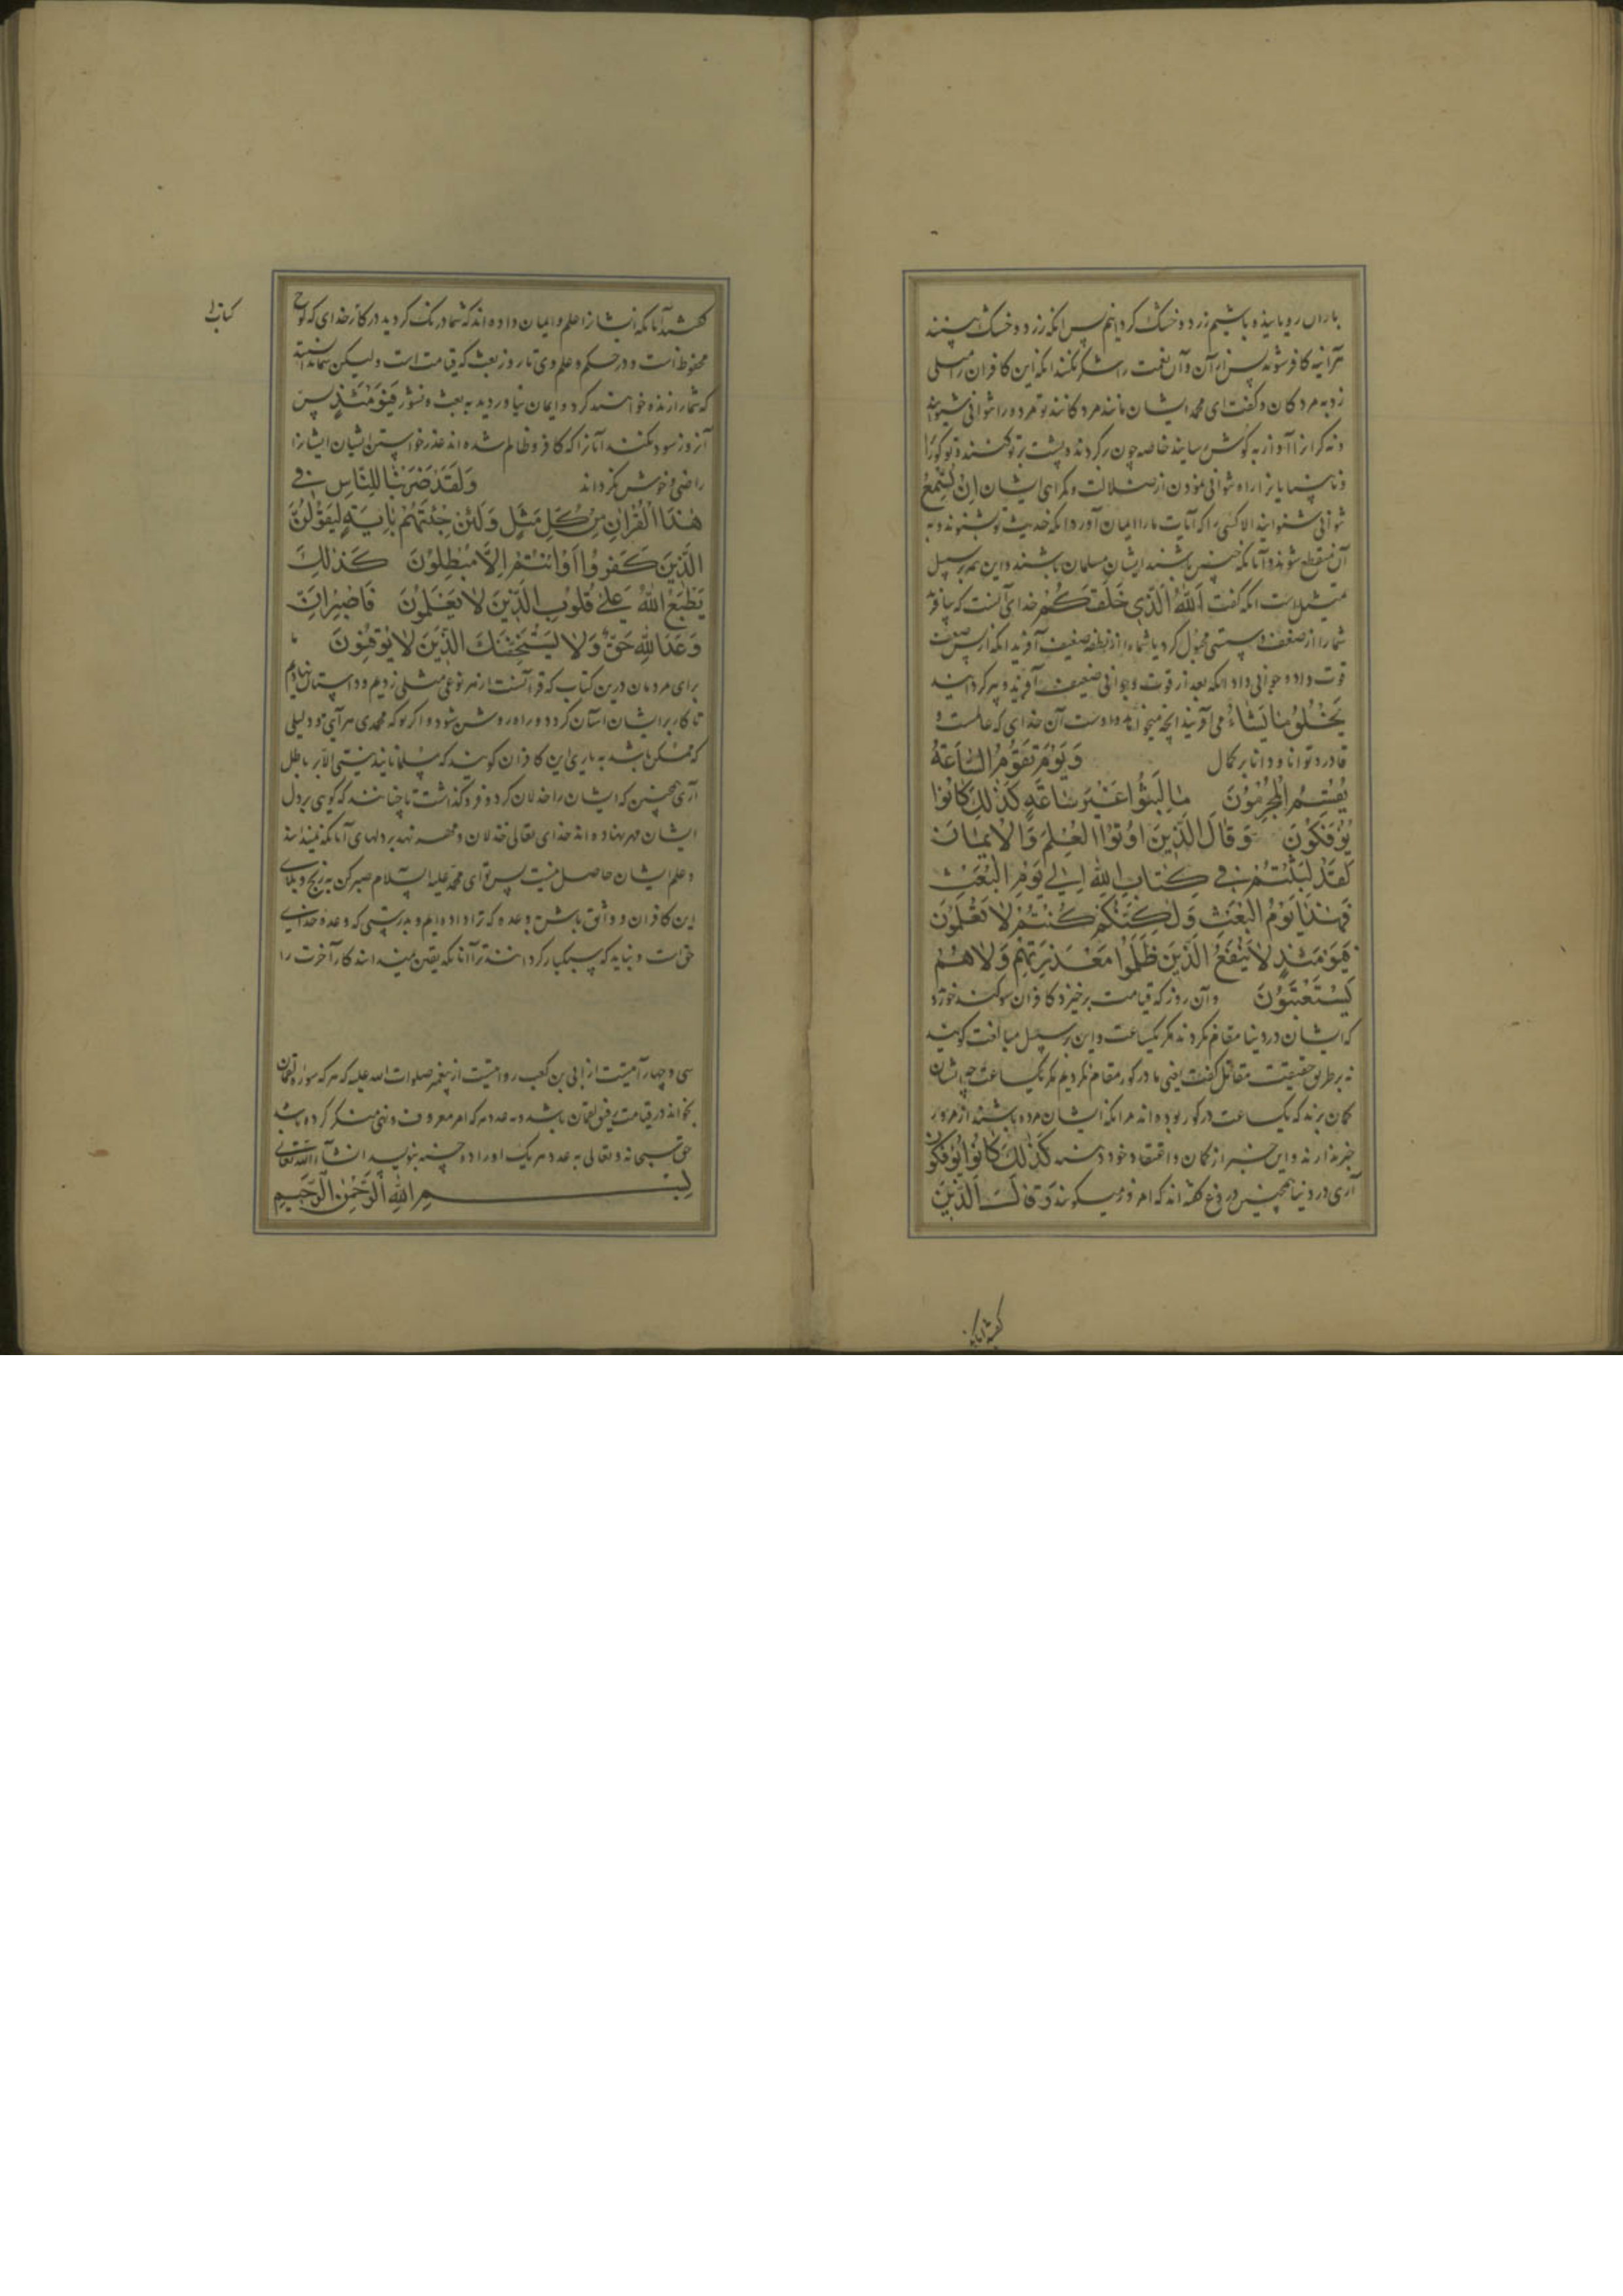 باران رویانیده باشیم زرد و خشک کردانیم پس انکه زرد و خشک بینند
هرآینه کافر شوند پس از آن و آن نعمت را شکر نکنند انکه این کافران را مثلی
زد به مردکان و کفت ای محمد ایشان مانند مردکانند و تو مرده را نتوانی شنوانید
و نه کرانرا آواز به کوش رسانید خاصه چون برکردند و پشت بر تو کنند و تو کورانرا
و نابینایانرا راه نتوانی نمودن از ضلالت و کمراهی ایشان اِنْ تُسْمِعُ
نتوانی شنوانید الا کسی را که آیات ما را ایمان آورد انکه حدیث تو بشنوند و به
آن منقطع شوند و آنانکه چنین باشند ایشان مسلمان باشند و این همه بر سبیل
تمثیلست انکه کفت اَللهُ الَّذی خَلَقَکُمْ خدای آنست که بیافرید
شما را از ضعف و سستی مجبول کرد یا شما را از نطفه ضعیف آفرید انکه از پس ضعف
قوت داد و جوانی داد انکه بعد از قوت و جوانی ضعیف آفرید و پیر کردانید
یَخْلُقُ مَا یَشَاءُ می آفریند انچه میخواهد و اوست آن خدای که عالمست و
قادر و توانا و دانا بر کمال وَیَوْمَ تَقُوْمُ السَّاعَةُ
یُقْسِمُ الْمُجْرِمُوْنَ مَا لَبِثُوا غَیْرَ سَاعَةٍ کَذٰلِکَ کَانُوا
یُؤْفَکُوْنَ وَقَالَ الَّذِیْنَ اُوْتُوْا الْعِلْمَ وَالْاِیْمَانَ
لَقَدْ لَبِثْتُمْ فِی کِتَابِ اللهِ اِلٰی یَوْمِ الْبَعْثِ
فَهٰذَا یَوْمُ الْبَعْثِ وَلٰکِنَّکُمْ کُنْتُمْ لَا تَعْلَمُوْنَ
فَیَوْمَئِذٍ لَا یَنْفَعُ الَّذِیْنَ ظَلَمُوْا مَعْذِرَتُهُمْ وَلَا هُمْ
یُسْتَعْتَبُوْنَ و آن روز که قیامت برخیزد کافران سوکند خورند
که ایشان در دنیا مقام نکردند مکر یکساعت و این بر سبیل مبالغت کویند
نه بر طریق حقیقت مقاتل کفت یعنی ما در کور مقام نکردیم مکر یکساعت چه ایشان
کمان برند که یکساعت در کور بوده اند هرانکه ایشان مرده باشند از مرور
خبر ندارند و این خبر از کمان و اعتقاد خود دهند کَذٰلِکَ کَانُوا یُؤْفَکُوْنَ
آری در دنیا همچنین دروغ کفته اند که امروز میکویند وَقَالَ الَّذِیْنَ
کفتند آنانکه
کفتند آنانکه ایشانرا علم و ایمان داده اند که شما درنک کردید در کتاب خدای که لوح
محفوظ است و در حکم و علم وی تا روز بعث که قیامت است ولیکن شما ندانستید
که شما را زنده خواهند کرد و ایمان نیاوردید به بعث و نشور فَیَوْمَئِذٍ پس
آنروز سود نکند آنانرا که کافر و ظالم شده اند عذر خواستن ایشان ایشانرا
راضی و خوش نکرداند وَلَقَدْ ضَرَبْنَا لِلنَّاسِ فِی
هٰذَا الْقُرْاٰنِ مِنْ کُلِّ مَثَلٍ وَلَئِنْ جِئْتَهُمْ بِاٰیَةٍ لَیَقُوْلَنَّ
الَّذِیْنَ کَفَرُوْا اِنْ اَنْتُمْ اِلَّا مُبْطِلُوْنَ کَذٰلِکَ
یَطْبَعُ اللهُ عَلٰی قُلُوْبِ الَّذِیْنَ لَا یَعْلَمُوْنَ فَاصْبِرْ اِنَّ
وَعْدَ اللهِ حَقٌّ وَلَا یَسْتَخِفَّنَّکَ الَّذِیْنَ لَا یُوْقِنُوْنَ ما
برای مردمان درین کتاب که قرآنست از هر نوعی مثلی زدیم و داستان نهادیم
تا کار بر ایشان آسان کردد و راه روشن شود و اکر تو که محمدی هر آیتی و دلیلی
که ممکن باشد به یاری این کافران کویند که مسلمانانید نیستی الا بر باطل
آری همچنین که ایشان را خذلان کرد و فروکذاشت تا چنانند که کویی بر دل
ایشان مهر نهاده اند خدای تعالی خذلان و مهر نهد بر دلهای آنانکه نمیدانند
و علم ایشان حاصل نیست پس تو ای محمد علیه السلام صبر کن به رنج و بلای
این کافران و واثق باش به وعده که ترا داده ایم و بدرستی که وعده خدای
حق است و نباید که سبکبار کردانند ترا آنانکه یقین نمیدانند کار آخرت را
سی و چهار آیتست از ابی بن کعب روایتست از پیغمبر صلوات الله علیه که هر که سوره لقمان
بخواند در قیامت رفیق لقمان باشد و به عدد هر که امر معروف و نهی منکر کرده باشد
حق سبحانه و تعالی به عدد هر یک او را ده حسنه بنویسد انشاءالله تعالی
بِسْمِ اللهِ الرَّحْمٰنِ الرَّحِیْمِ